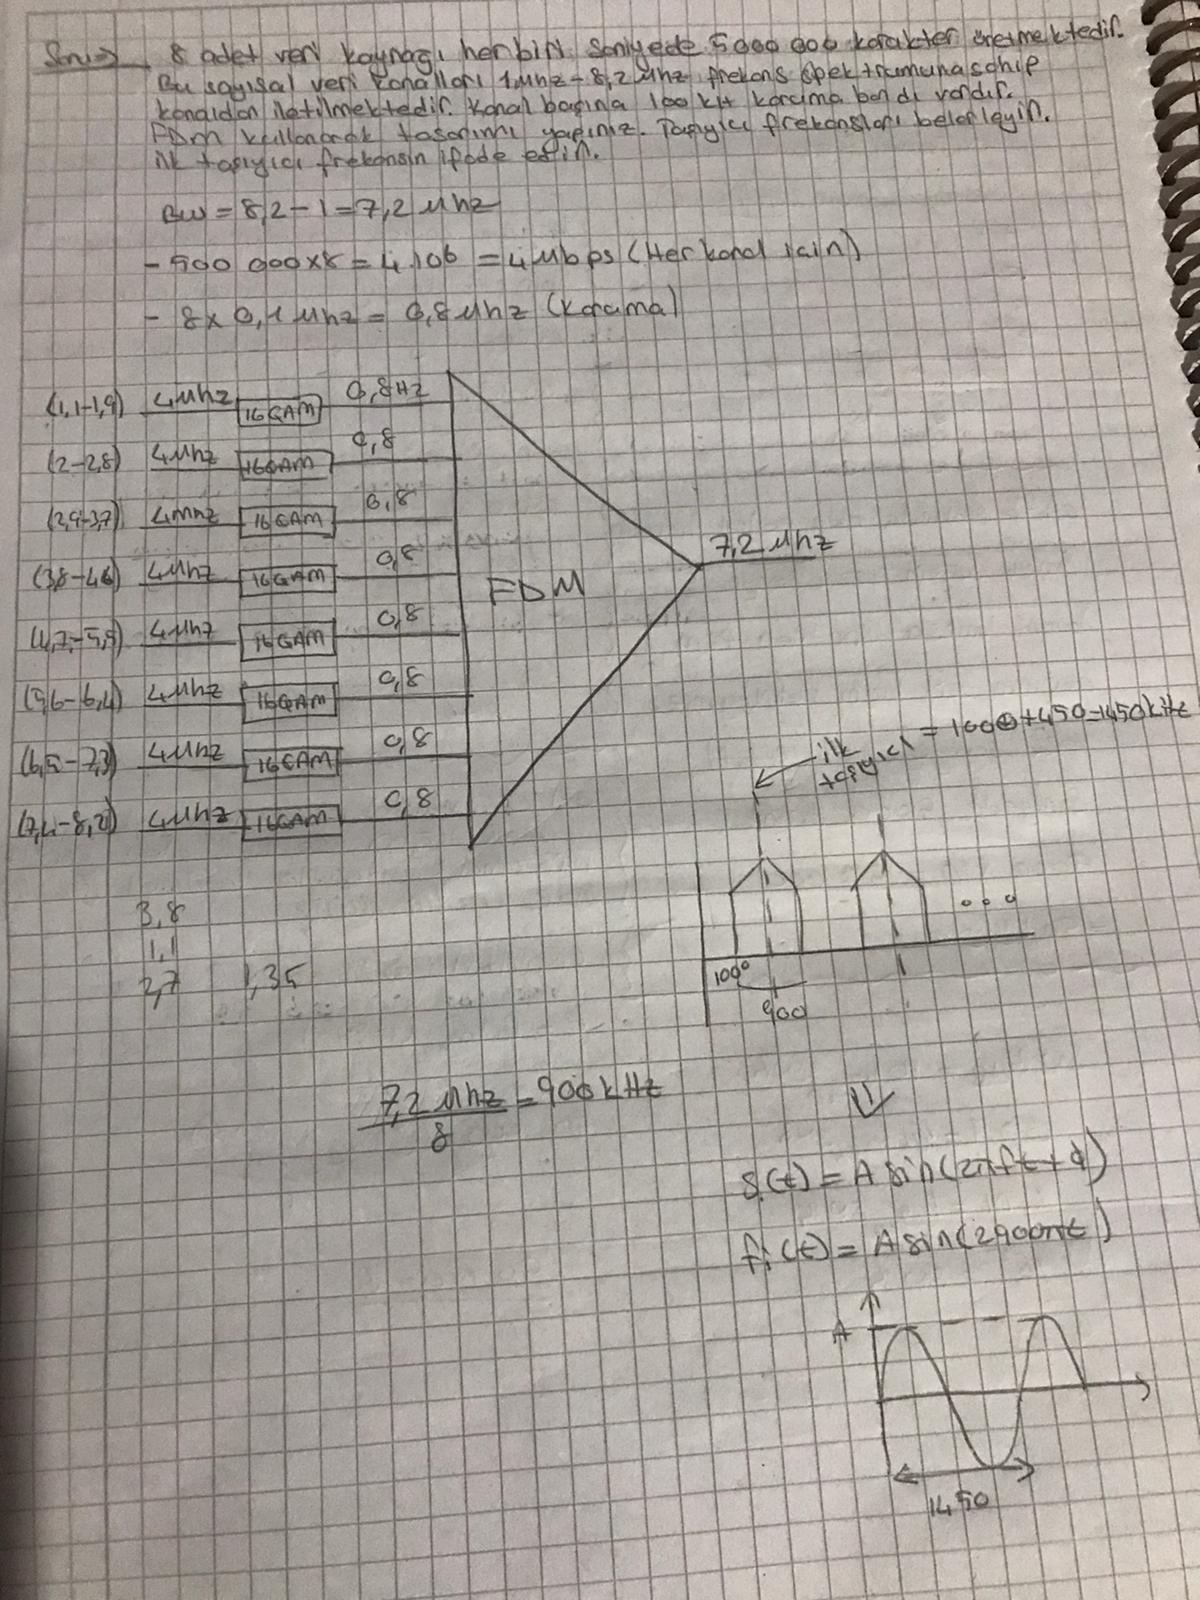 Soru→ 8 adet veri kaynağı her biri saniyede 5000 000 karakter üretmektedir.
Bu sayısal veri kanalları 1 Mhz - 8,2 Mhz frekans spektrumuna sahip
kanaldan iletilmektedir. Kanal başına 100 kH koruma bandı vardır.
FDM kullanarak tasarımı yapınız. Taşıyıcı frekansları belirleyin.
ilk taşıyıcı frekansın ifade edin.
BW = 8,2 - 1 = 7,2 Mhz
- 500 000x8 = 4.106 = 4 Mbps (Her kanal için)
- 8 x 0,1 Mhz = 0,8 Mhz (Koruma)
(1,1-1,9) 4Mhz 16QAM 0,8Hz
(2-2,8) 4Mhz 16QAM 0,8
(2,9-3,7) 4Mhz 16QAM 0,8
(3,8-4,6) 4Mhz 16QAM 0,8
(4,7-5,5) 4Mhz 16QAM 0,8
(5,6-6,4) 4Mhz 16QAM 0,8
(6,5-7,3) 4Mhz 16QAM 0,8
(7,4-8,2) 4Mhz 16QAM 0,8
FDM
7,2 Mhz
ilk taşıyıcı = 1000+450=1450kHz
1000
900
3,8
1,1
2,7 1,35
7,2 Mhz = 900 kHz
8
s(t) = A sin(2πft + ϕ)
f1(t) = A sin(2900πt)
A
1450